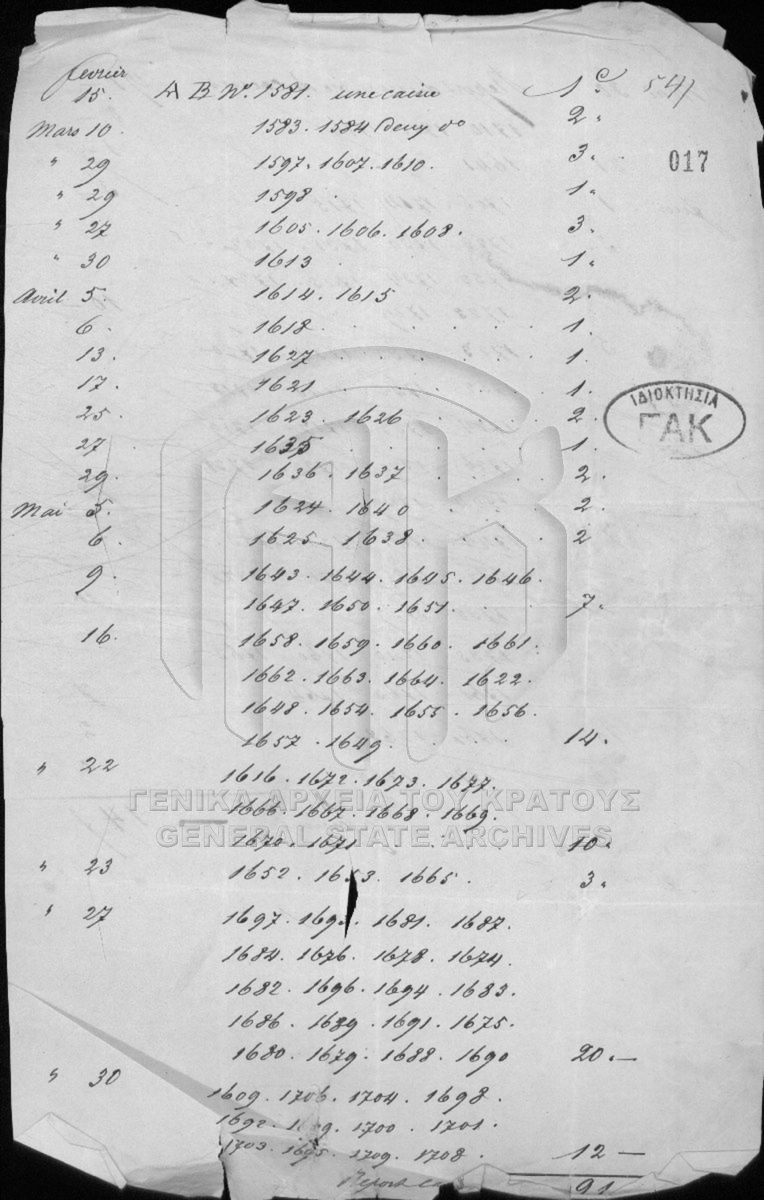 fevrier
15. A B Nº. 1581. une caisse 1 C 541
Mars 10. 1583. 1584 deux dº 2 "
017
" 29 1597. 1607. 1610. 3 "
" 29 1598 . 1 "
" 27 1605. 1606. 1608. 3 "
" 30 1613 . 1 "
Avril 5. 1614. 1615 2.
6. 1618 1.
13. 1627 1.
17. 1621 1.
ΙΔΙΟΚΤΗΣΙΑ
ΓΑΚ
25. 1623. 1626 2.
27. 1635 1.
29. 1636. 1637 2.
Mai 5. 1624. 1640 2.
6. 1625 1638 2
9. 1643. 1644. 1645. 1646.
1647. 1650. 1651. 7.
16. 1658. 1659. 1660. 1661.
1662. 1663. 1664. 1622.
1648. 1654. 1655. 1656.
1657. 1649. 14.
" 22 1616. 1672. 1673. 1677.
ΓΕΝΙΚΑ ΑΡΧΕΙΑ ΤΟΥ ΚΡΑΤΟΥΣ
1666. 1667. 1668. 1669.
GENERAL STATE ARCHIVES
1670. 1671 10.
" 23 1652. 1653. 1665. 3.
" 27 1697. 1681. 1687.
1684. 1676. 1678. 1674.
1682. 1696. 1694. 1683.
1686. 1689. 1691. 1675.
1680. 1679. 1688. 1690 20.—
" 30 1609. 1706. 1704. 1698.
1692. 1700. 1701.
1703. 1695. 1709. 1708. 12 —
Report 91